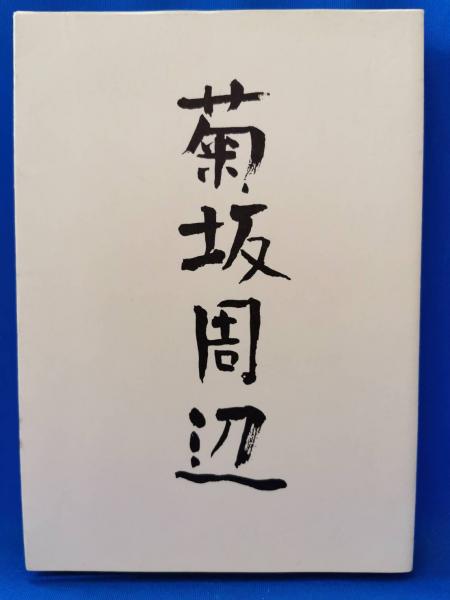 菊坂周辺